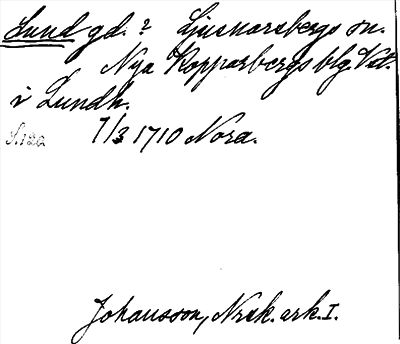 Lund gd.? Ljusnarsbergs sn.
Nya Kopparbergs blg. Vstm.
i Lundh.
7/3 1710 Nora.
Johansson, Nrk. ark. I.